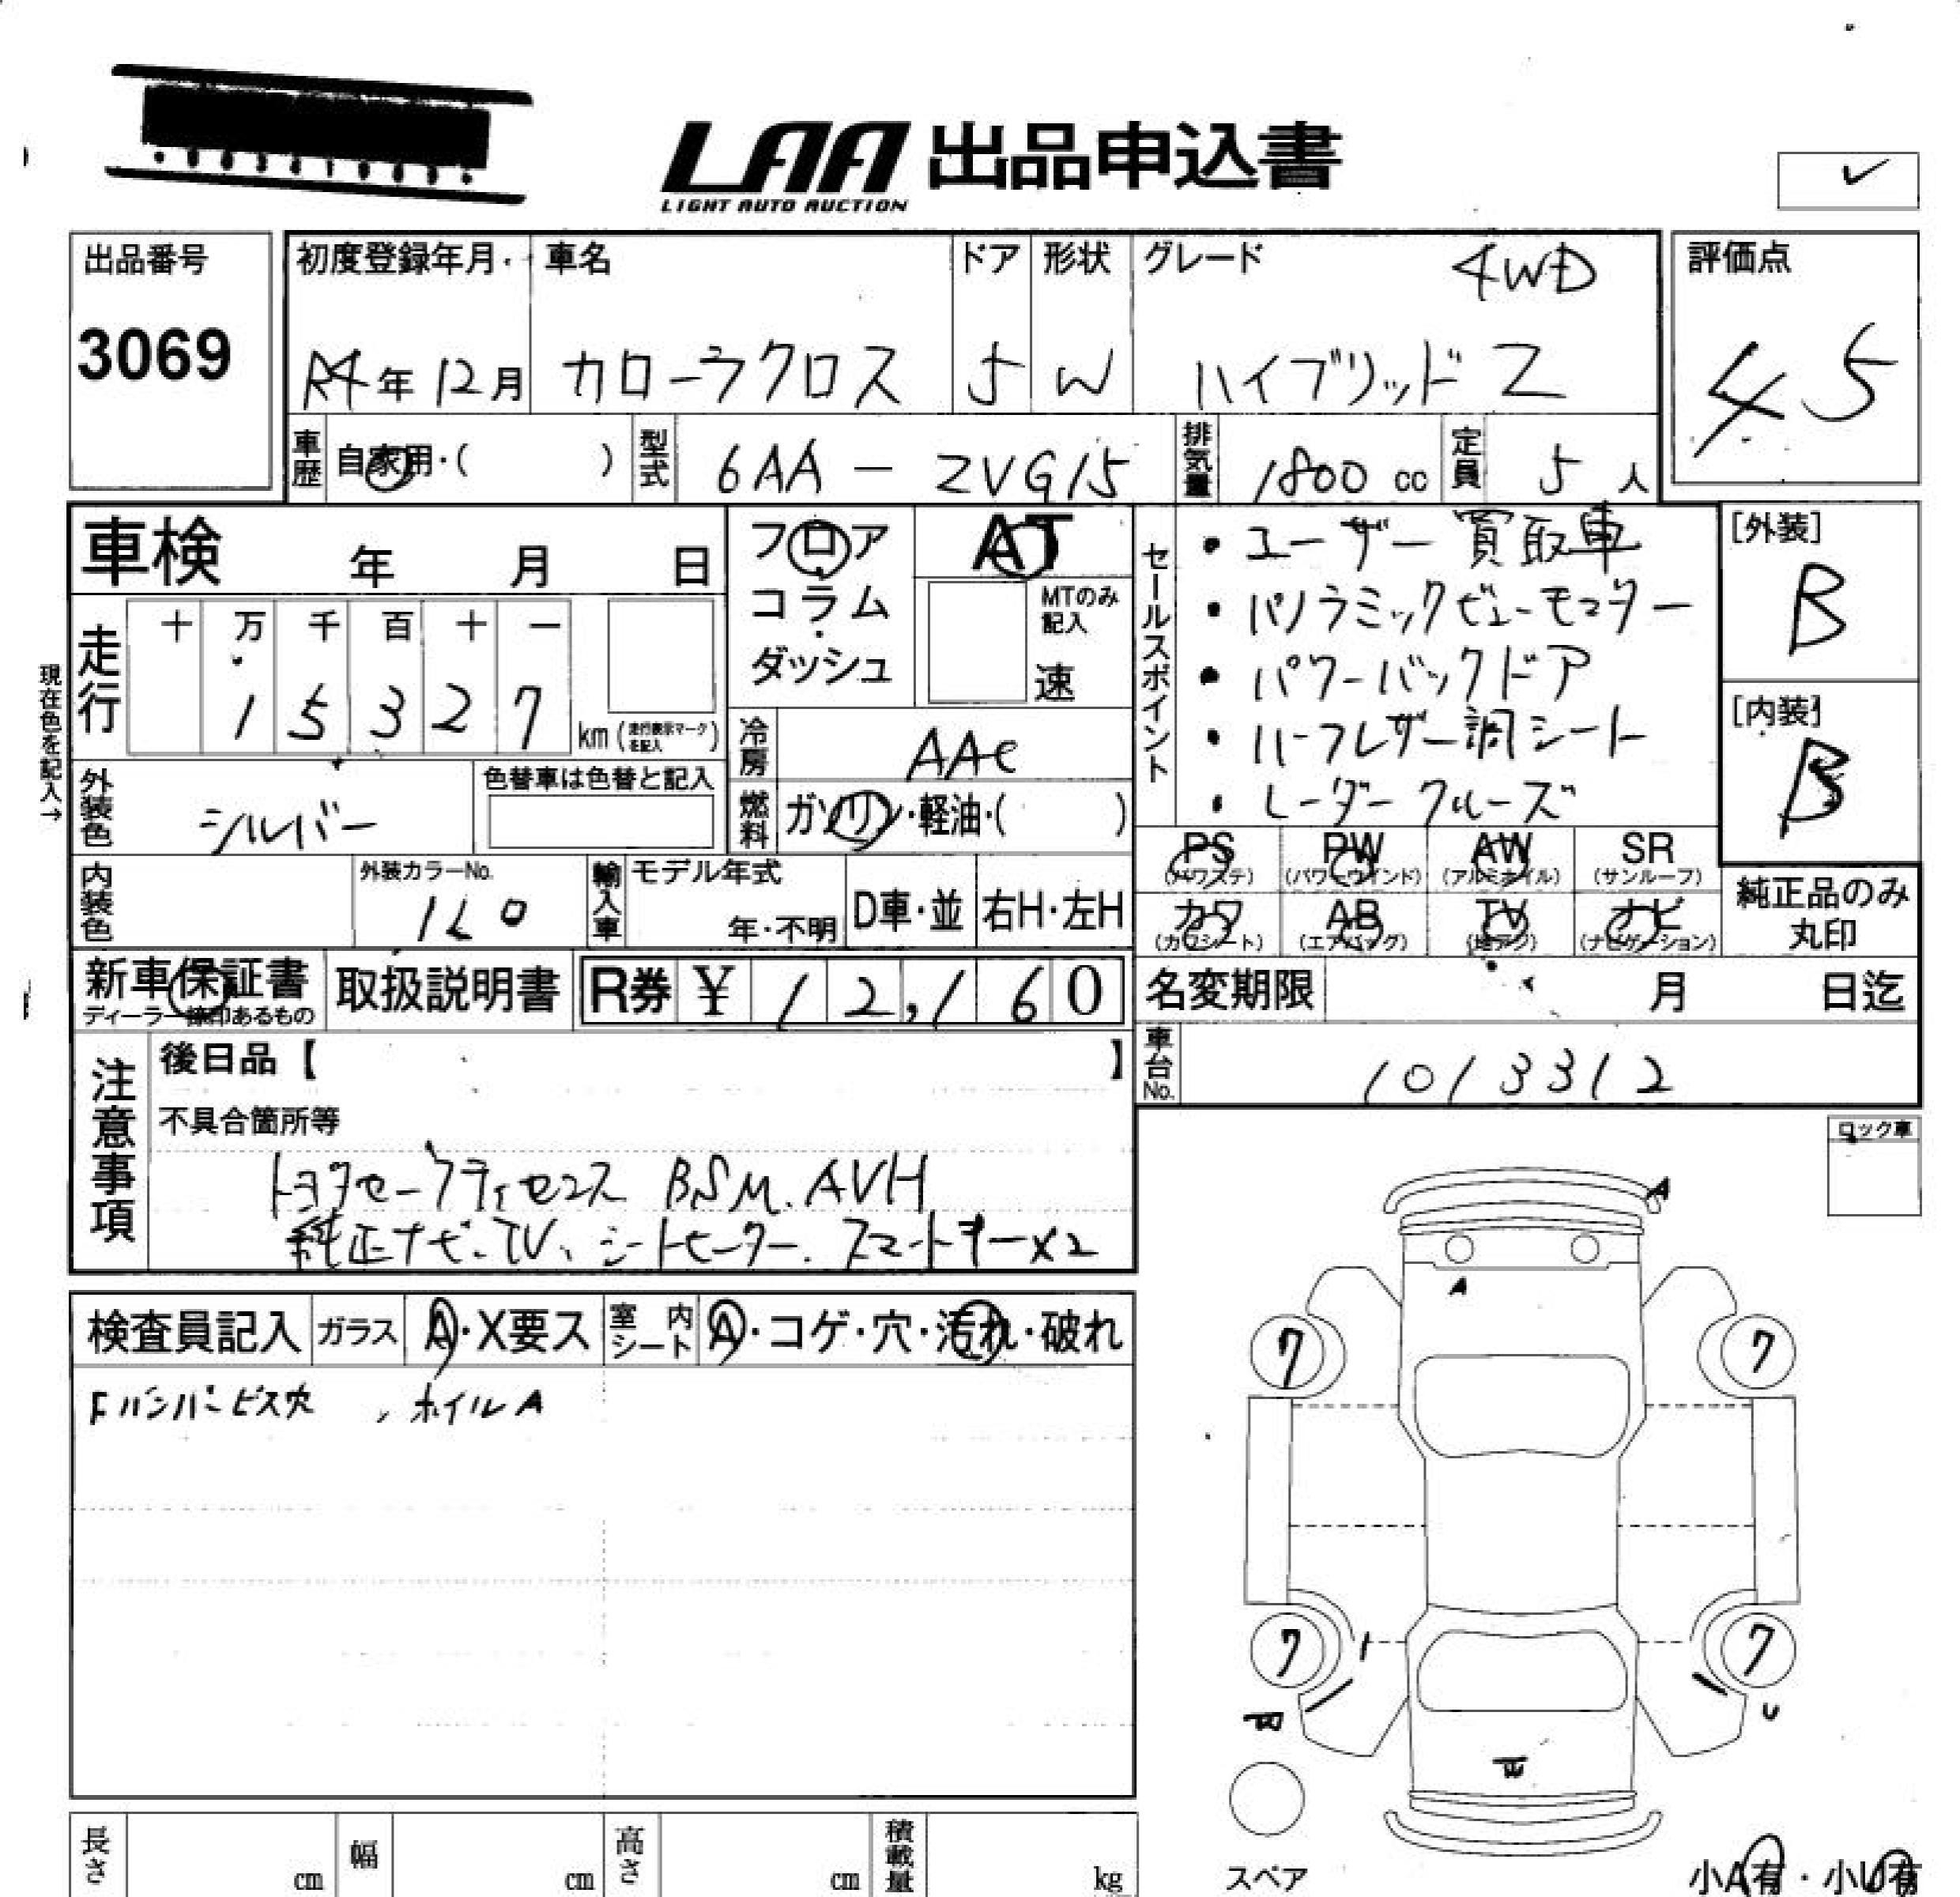 LAA 出品申込書
LIGHT AUTO AUCTION
出品番号
3069
初度登録年月
R4年 12月
車名
カローラクロス
ドア
5
形状
W
グレード
4WD
ハイブリッド Z
評価点
4 5
車歴
自家用・( )
型式
6AA - ZVG15
排気量
1800 cc
定員
5 人
車検 年 月 日
走行
十 万 千 百 十 一
1 5 3 2 7 km (走行表示マークを記入)
現在色を記入→
外装色
シルバー
色替車は色替と記入
内装色
外装カラーNo.
1L0
輸入車
モデル年式
年・不明
D車・並
右H・左H
フロア
コラム
・
ダッシュ
AT
MTのみ
記入
速
冷房
AAC
燃料
ガソリン・軽油・( )
セールスポイント
・ユーザー買取車
・パノラミックビューモニター
・パワーバックドア
・ハーフレザー調シート
・レーダークルーズ
[外装]
B
[内装]
B
PS
(パワステ)
PW
(パワーウインド)
AW
(アルミホイル)
SR
(サンルーフ)
カワ
(カワシート)
AB
(エアバッグ)
TV
(地デジ)
ナビ
(ナビゲーション)
純正品のみ
丸印
新車保証書
ディーラー捺印あるもの
取扱説明書
R券 ¥ 12,160
名変期限 月 日迄
車台No.
1013312
注意事項
後日品【 】
不具合箇所等
トヨタセーフティセンス BSM. AVH
純正ナビ.TV、シートヒーター. スマートキーX2
ロック車
検査員記入
ガラス
A・X要ス
室内シート
A・コゲ・穴・汚れ・破れ
Fバンパービス穴 、ホイルA
A
A
7
7
7
7
U
スペア
小A有・小U有
長さ cm
幅 cm
高さ cm
積載量 kg